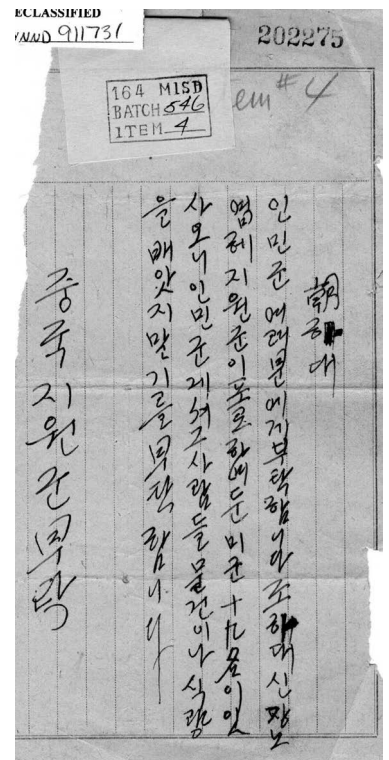 ECLASSIFIED
NND 911731
202275
164 MISD
BATCH 546
ITEM 4
em #4
朝하대
인민군 여러분에게부탁합니다조하대신짱노
엽헤지원군이포로하여둔미군十九몡이잇
사오니인민군게서그사람들물건이나식량
을빼앗지말기를부탁합니다
중국지원군부탁